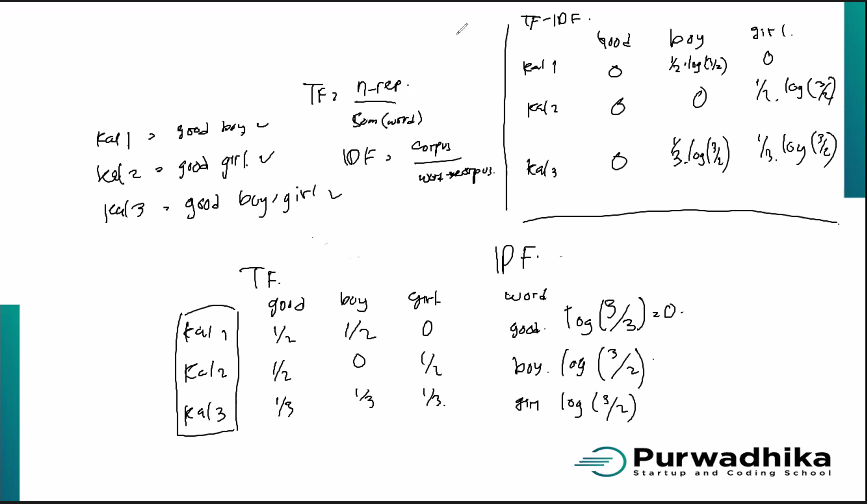 kal 1 = good boy
kal 2 = good girl
kal 3 = good boy, girl
TF = n-rep.
Sum(word)
IDF = corpus
word corpus.
TF-IDF.
good boy girl.
kal 1 0 1/2.log(3/2) 0
kal 2 0 0 1/2.log(3/2)
kal 3 0 1/3.log(3/2) 1/3.log(3/2)
TF.
good boy girl
kal 1 1/2 1/2 0
kal 2 1/2 0 1/2
kal 3 1/3 1/3 1/3.
IDF.
word
good. log(3/3)=0.
boy. log(3/2)
log(3/2)
Purwadhika
Startup and Coding School